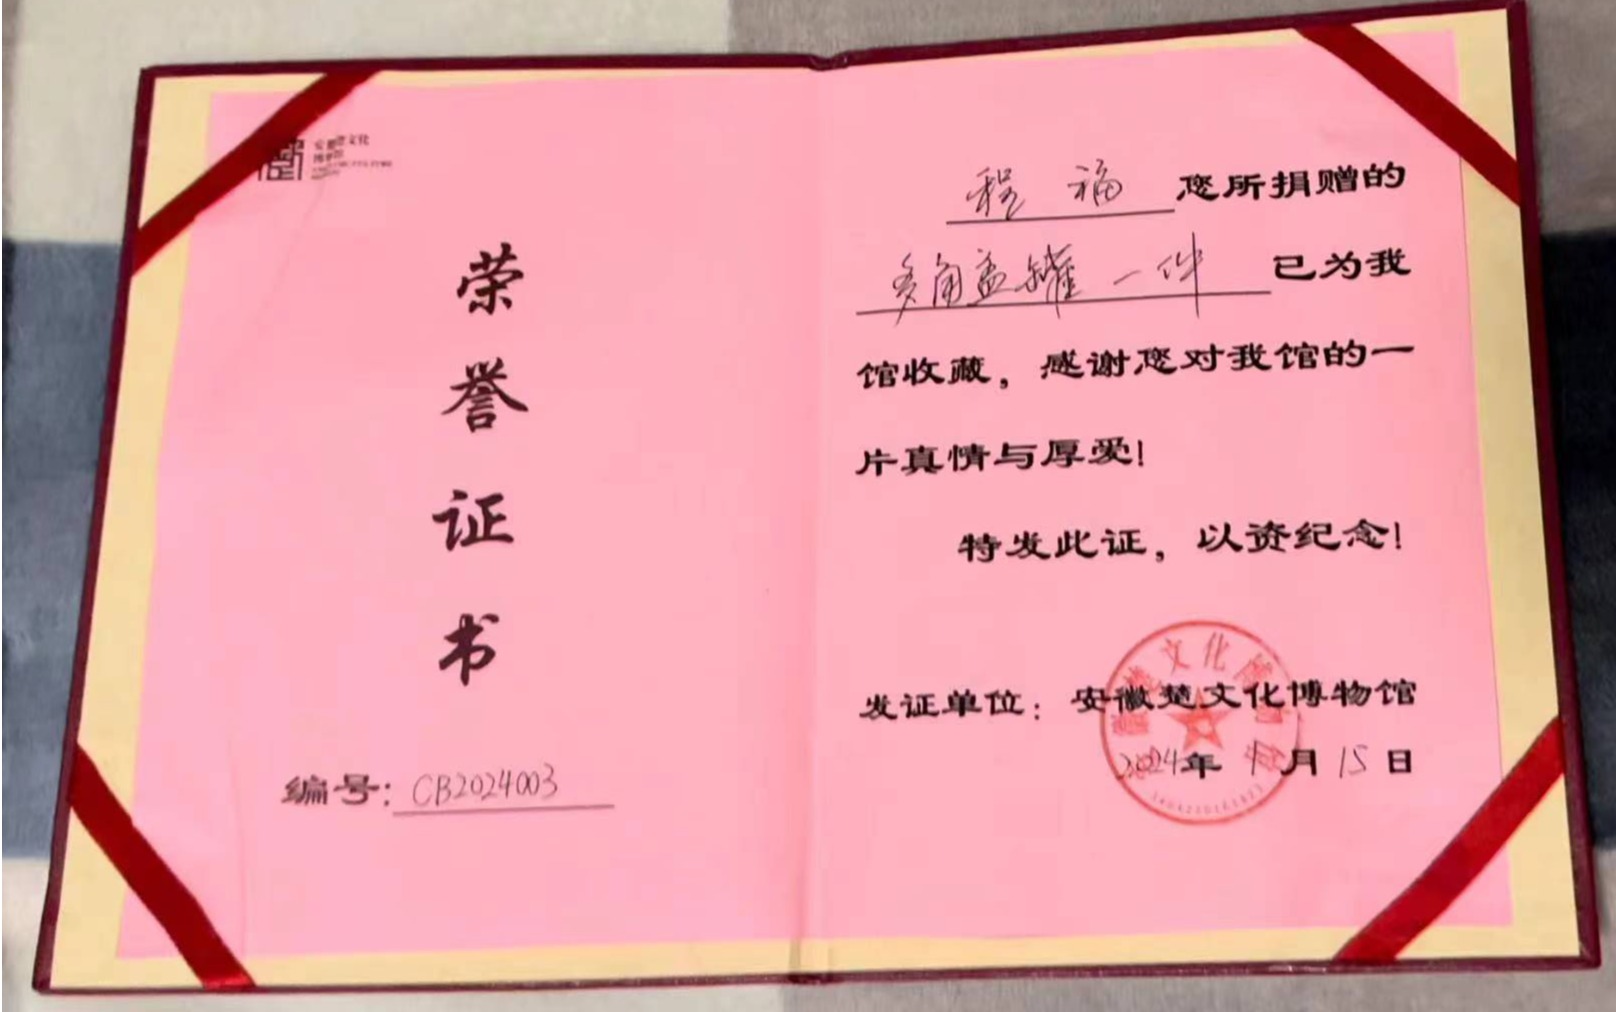 安徽楚文化
博物馆
荣
誉
证
书
编号：CB2024003
程 福 您所捐赠的
多角盖罐一件 已为我
馆收藏，感谢您对我馆的一
片真情与厚爱！
特发此证，以资纪念！
发证单位：安徽楚文化博物馆
2024年 月15日
徽楚文化博物馆